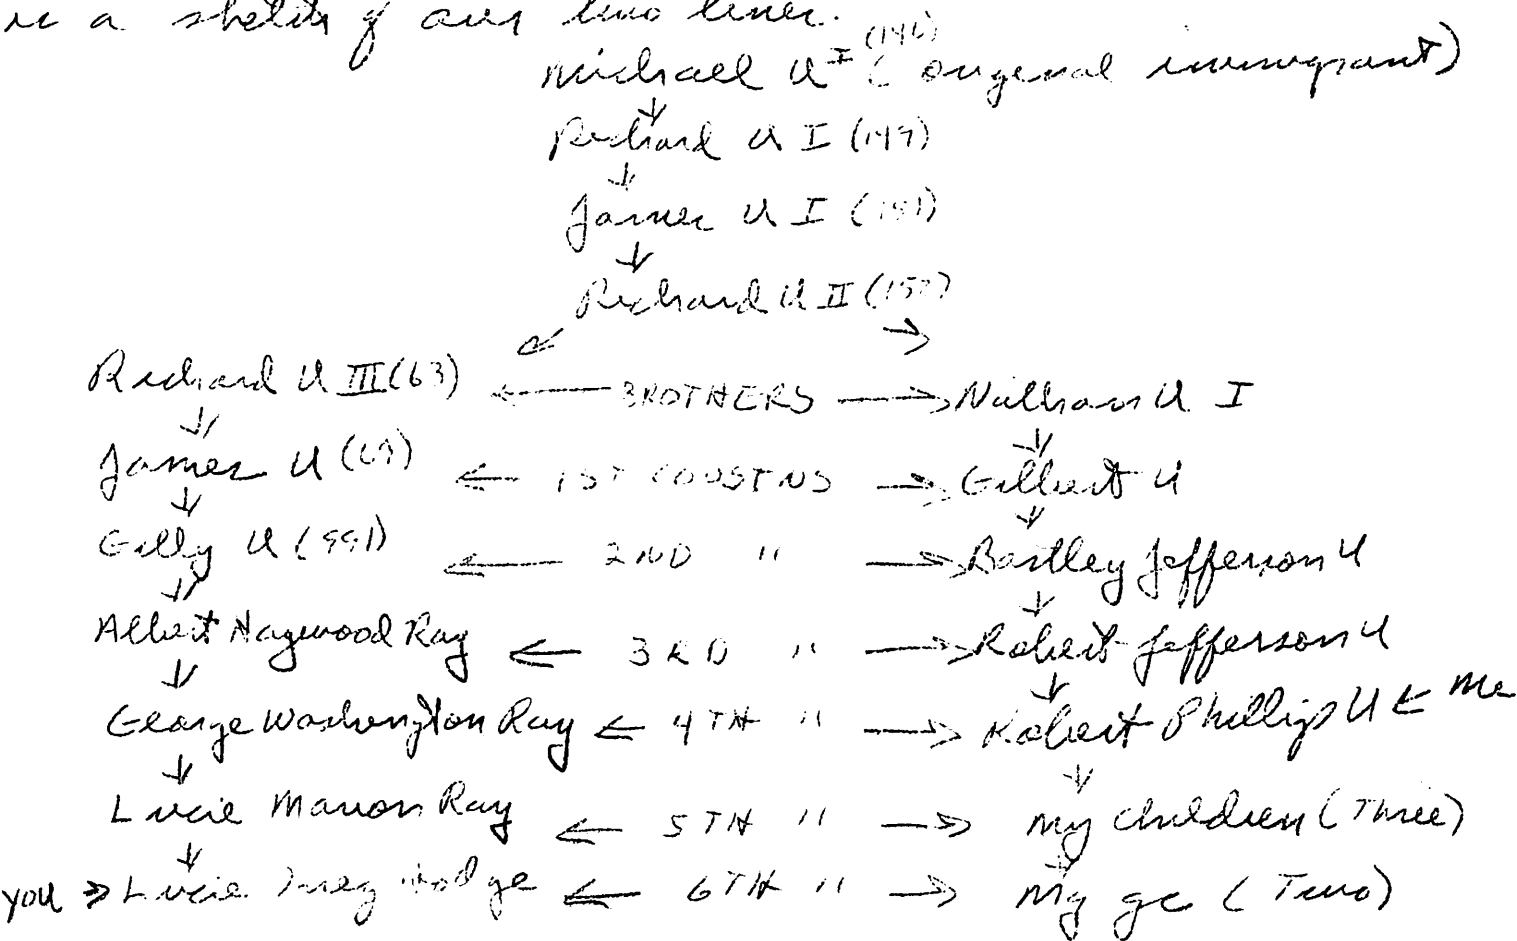 is a sketch of our two lines.
Michael U I (146) (original immigrant)
Richard U I (147)
James U I (151)
Richard U II (157)
Richard U III (63) ← BROTHERS → Nathan U I
James U (69) ← 1ST COUSINS → Gilbert U
Gilly U (991) ← 2ND " → Bartley Jefferson U
Albert Haywood Ray ← 3RD " → Robert Jefferson U
George Washington Ray ← 4TH " → Robert Phillips U ← Me
Lucie Marion Ray ← 5TH " → My children (Three)
you → Lucie Hodge ← 6TH " → My gc (Two)